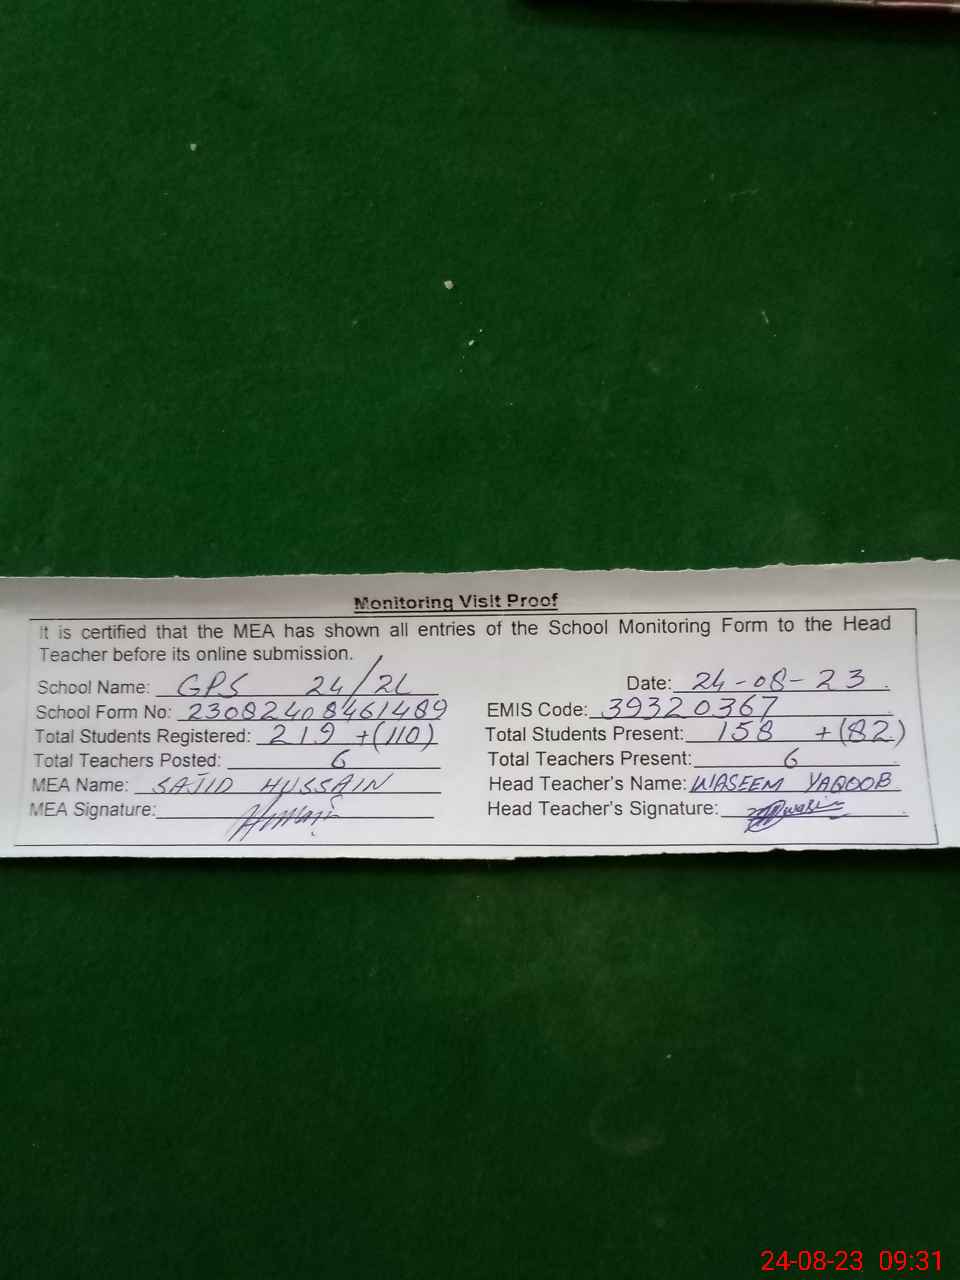 Monitoring Visit Proof
It is certified that the MEA has shown all entries of the School Monitoring Form to the Head
Teacher before its online submission.
School Name: GPS 24/2L Date: 24-08-23
School Form No: 23082408461489 EMIS Code: 39320367
Total Students Registered: 219 +(110) Total Students Present: 158 +(82)
Total Teachers Posted: 6 Total Teachers Present: 6
MEA Name: SAJID HUSSAIN Head Teacher's Name: WASEEM YAQOOB
MEA Signature: Head Teacher's Signature:
24-08-23 09:31